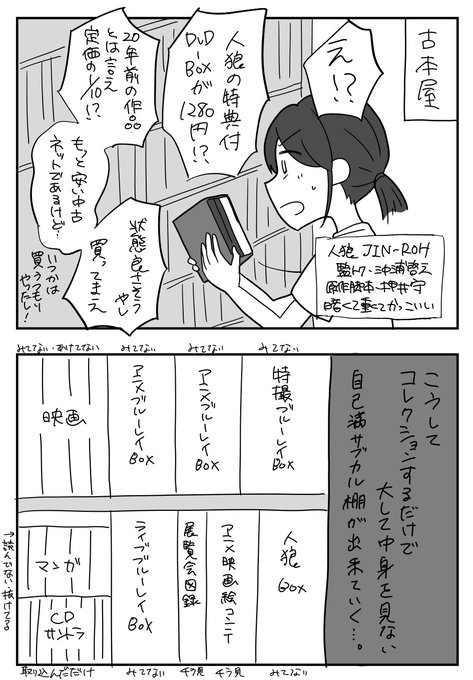 古本屋
え!?
人狼の特典付
DVD-BOXが
1280円!?
20年前の作品
とは言え
定価の1/10!?
もっと安い中古
ネットであるけど…
状態良さそう
やし
買ってまえ
いつかは
買うつもり
やったし!
人狼 JIN-ROH
監督・沖浦啓之
原作脚本・押井守
暗くて重くてかっこいい
こうして
コレクションするだけで
大して中身を見ない
自己満サブカル棚が出来ていく…。
みてない
特撮ブルーレイBOX
みてない
アニメブルーレイBOX
みてない
アニメブルーレイBOX
みてない・あけてない
映画
人狼BOX
みてない
アニメ映画絵コンテ
チラ見
展覧会図録
チラ見
ライブブルーレイBOX
みてない
マンガ
→読んでない 抜けてる
CD
サントラ
取り込んだだけ